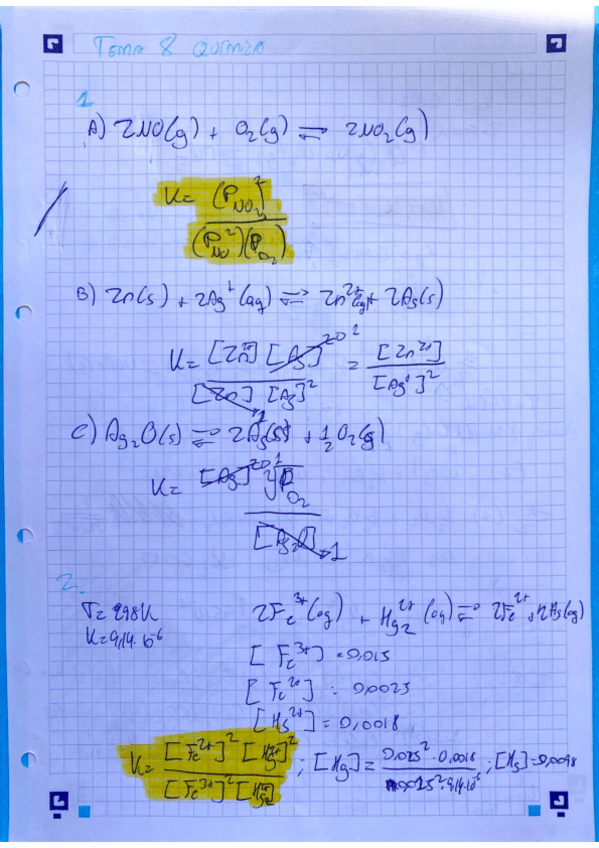 Tema 8 Química
1.
A) 2NO(g) + O₂(g) ⇌ 2NO₂(g)
K = (P_NO₂)² / (P_NO²)(P_O₂)
B) Zn(s) + 2Ag⁺(aq) ⇌ Zn²⁺(aq) + 2Ag(s)
K = [Zn²⁺] [Ag]² / [Zn] [Ag]² = [Zn²⁺] / [Ag⁺]²
C) Ag₂O(s) ⇌ 2Ag(s) + 1/2 O₂(g)
K = [Ag]² √P_O₂ / [Ag₂O] → 1
2.
T = 298K
K = 9,14·10⁻⁶
2Fe³⁺(aq) + Hg₂²⁺(aq) ⇌ 2Fe²⁺ + 2Hg(aq)
[Fe³⁺] = 0,015
[Fe²⁺] = 0,0025
[Hg²⁺] = 0,0018
K = [Fe²⁺]² [Hg²⁺]² / [Fe³⁺]² [Hg₂²⁺] ; [Hg] = 0,025² · 0,0018 / 0,0015² · 9,14·10⁻⁶ ; [Hg] = 0,0098